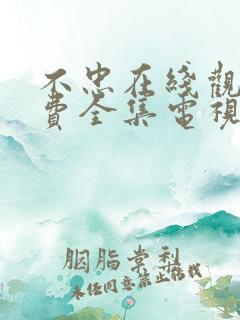 不忠在綫觀
費全集電視
胭脂棠利
未经同意禁止转载